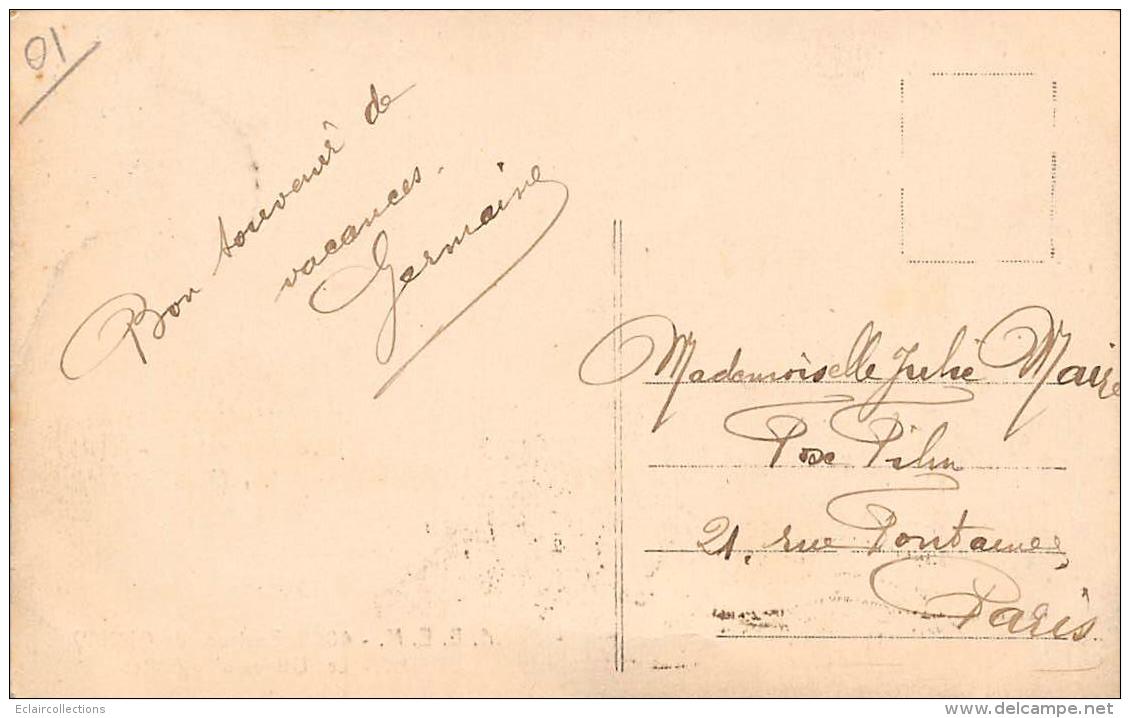 01
Bon souvenir de
vacances.
Germaine
Mademoiselle Julie Maire
Fox Film
21, rue Fontaines
Paris
Eclaircollections
www.delcampe.net